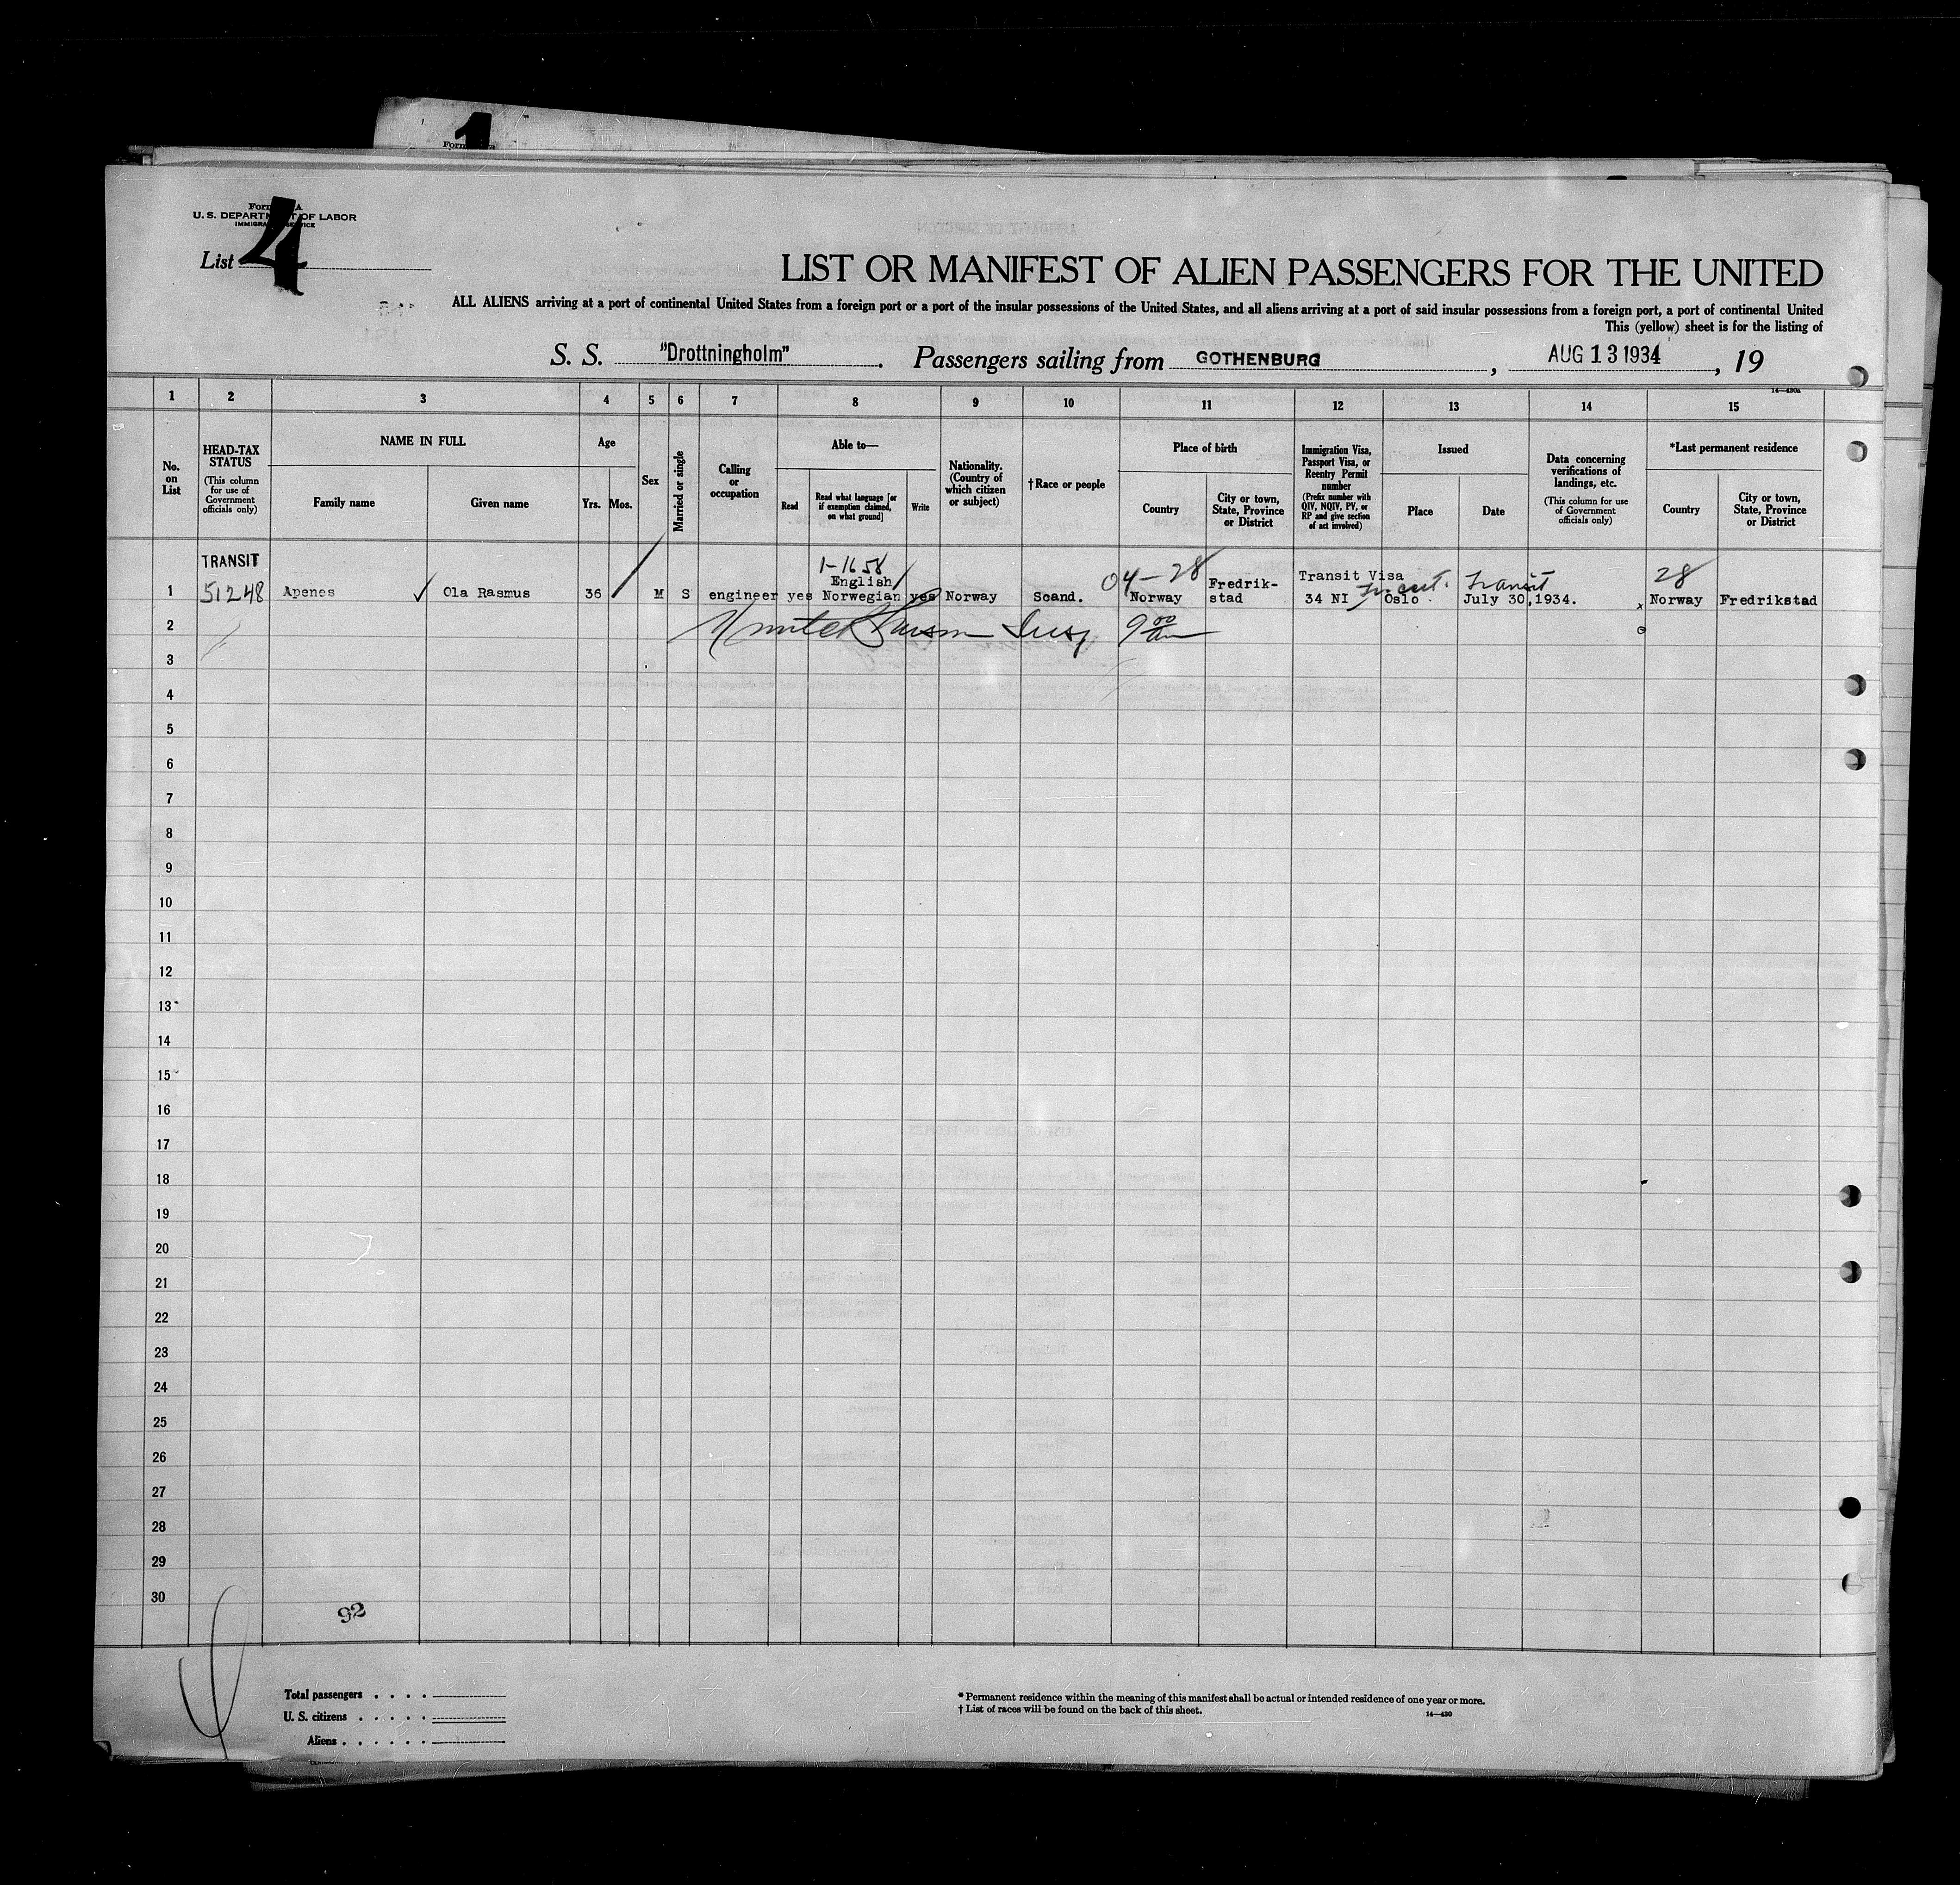 1
Form
Form A
U. S. DEPARTMENT OF LABOR
IMMIGRATION SERVICE
List 4
LIST OR MANIFEST OF ALIEN PASSENGERS FOR THE UNITED
ALL ALIENS arriving at a port of continental United States from a foreign port or a port of the insular possessions of the United States, and all aliens arriving at a port of said insular possessions from a foreign port, a port of continental United
This (yellow) sheet is for the listing of
S. S. "Drottningholm". Passengers sailing from GOTHENBURG, AUG 13 1934, 19
14—430a
1 2 3 4 5 6 7 8 9 10 11 12 13 14 15
No. on List
HEAD-TAX STATUS
(This column for use of Government officials only)
NAME IN FULL
Family name
Given name
Age
Yrs. Mos.
Sex
Married or single
Calling or occupation
Able to—
Read
Read what language [or if exemption claimed, on what ground]
Write
Nationality. (Country of which citizen or subject)
†Race or people
Place of birth
Country
City or town, State, Province or District
Immigration Visa, Passport Visa, or Reentry Permit number
(Prefix number with QIV, NQIV, PV, or RP and give section of act involved)
Issued
Place
Date
Data concerning verifications of landings, etc.
(This column for use of Government officials only)
*Last permanent residence
Country
City or town, State, Province or District
TRANSIT 1-1658 04-28 Transit Visa Transit 28
English Fredrik-
1 51248 Apenes ✓ Ola Rasmus 36 M S engineer yes Norwegian yes Norway Scand. Norway stad 34 NI Transit Oslo July 30,1934. x Norway Fredrikstad
2 9 00 am
3
4
5
6
7
8
9
10
11
12
13
14
15
16
17
18
19
20
21
22
23
24
25
26
27
28
29
30
92
Total passengers . . . .
U. S. citizens . . . . .
Aliens . . . . . .
* Permanent residence within the meaning of this manifest shall be actual or intended residence of one year or more.
† List of races will be found on the back of this sheet.
14—430